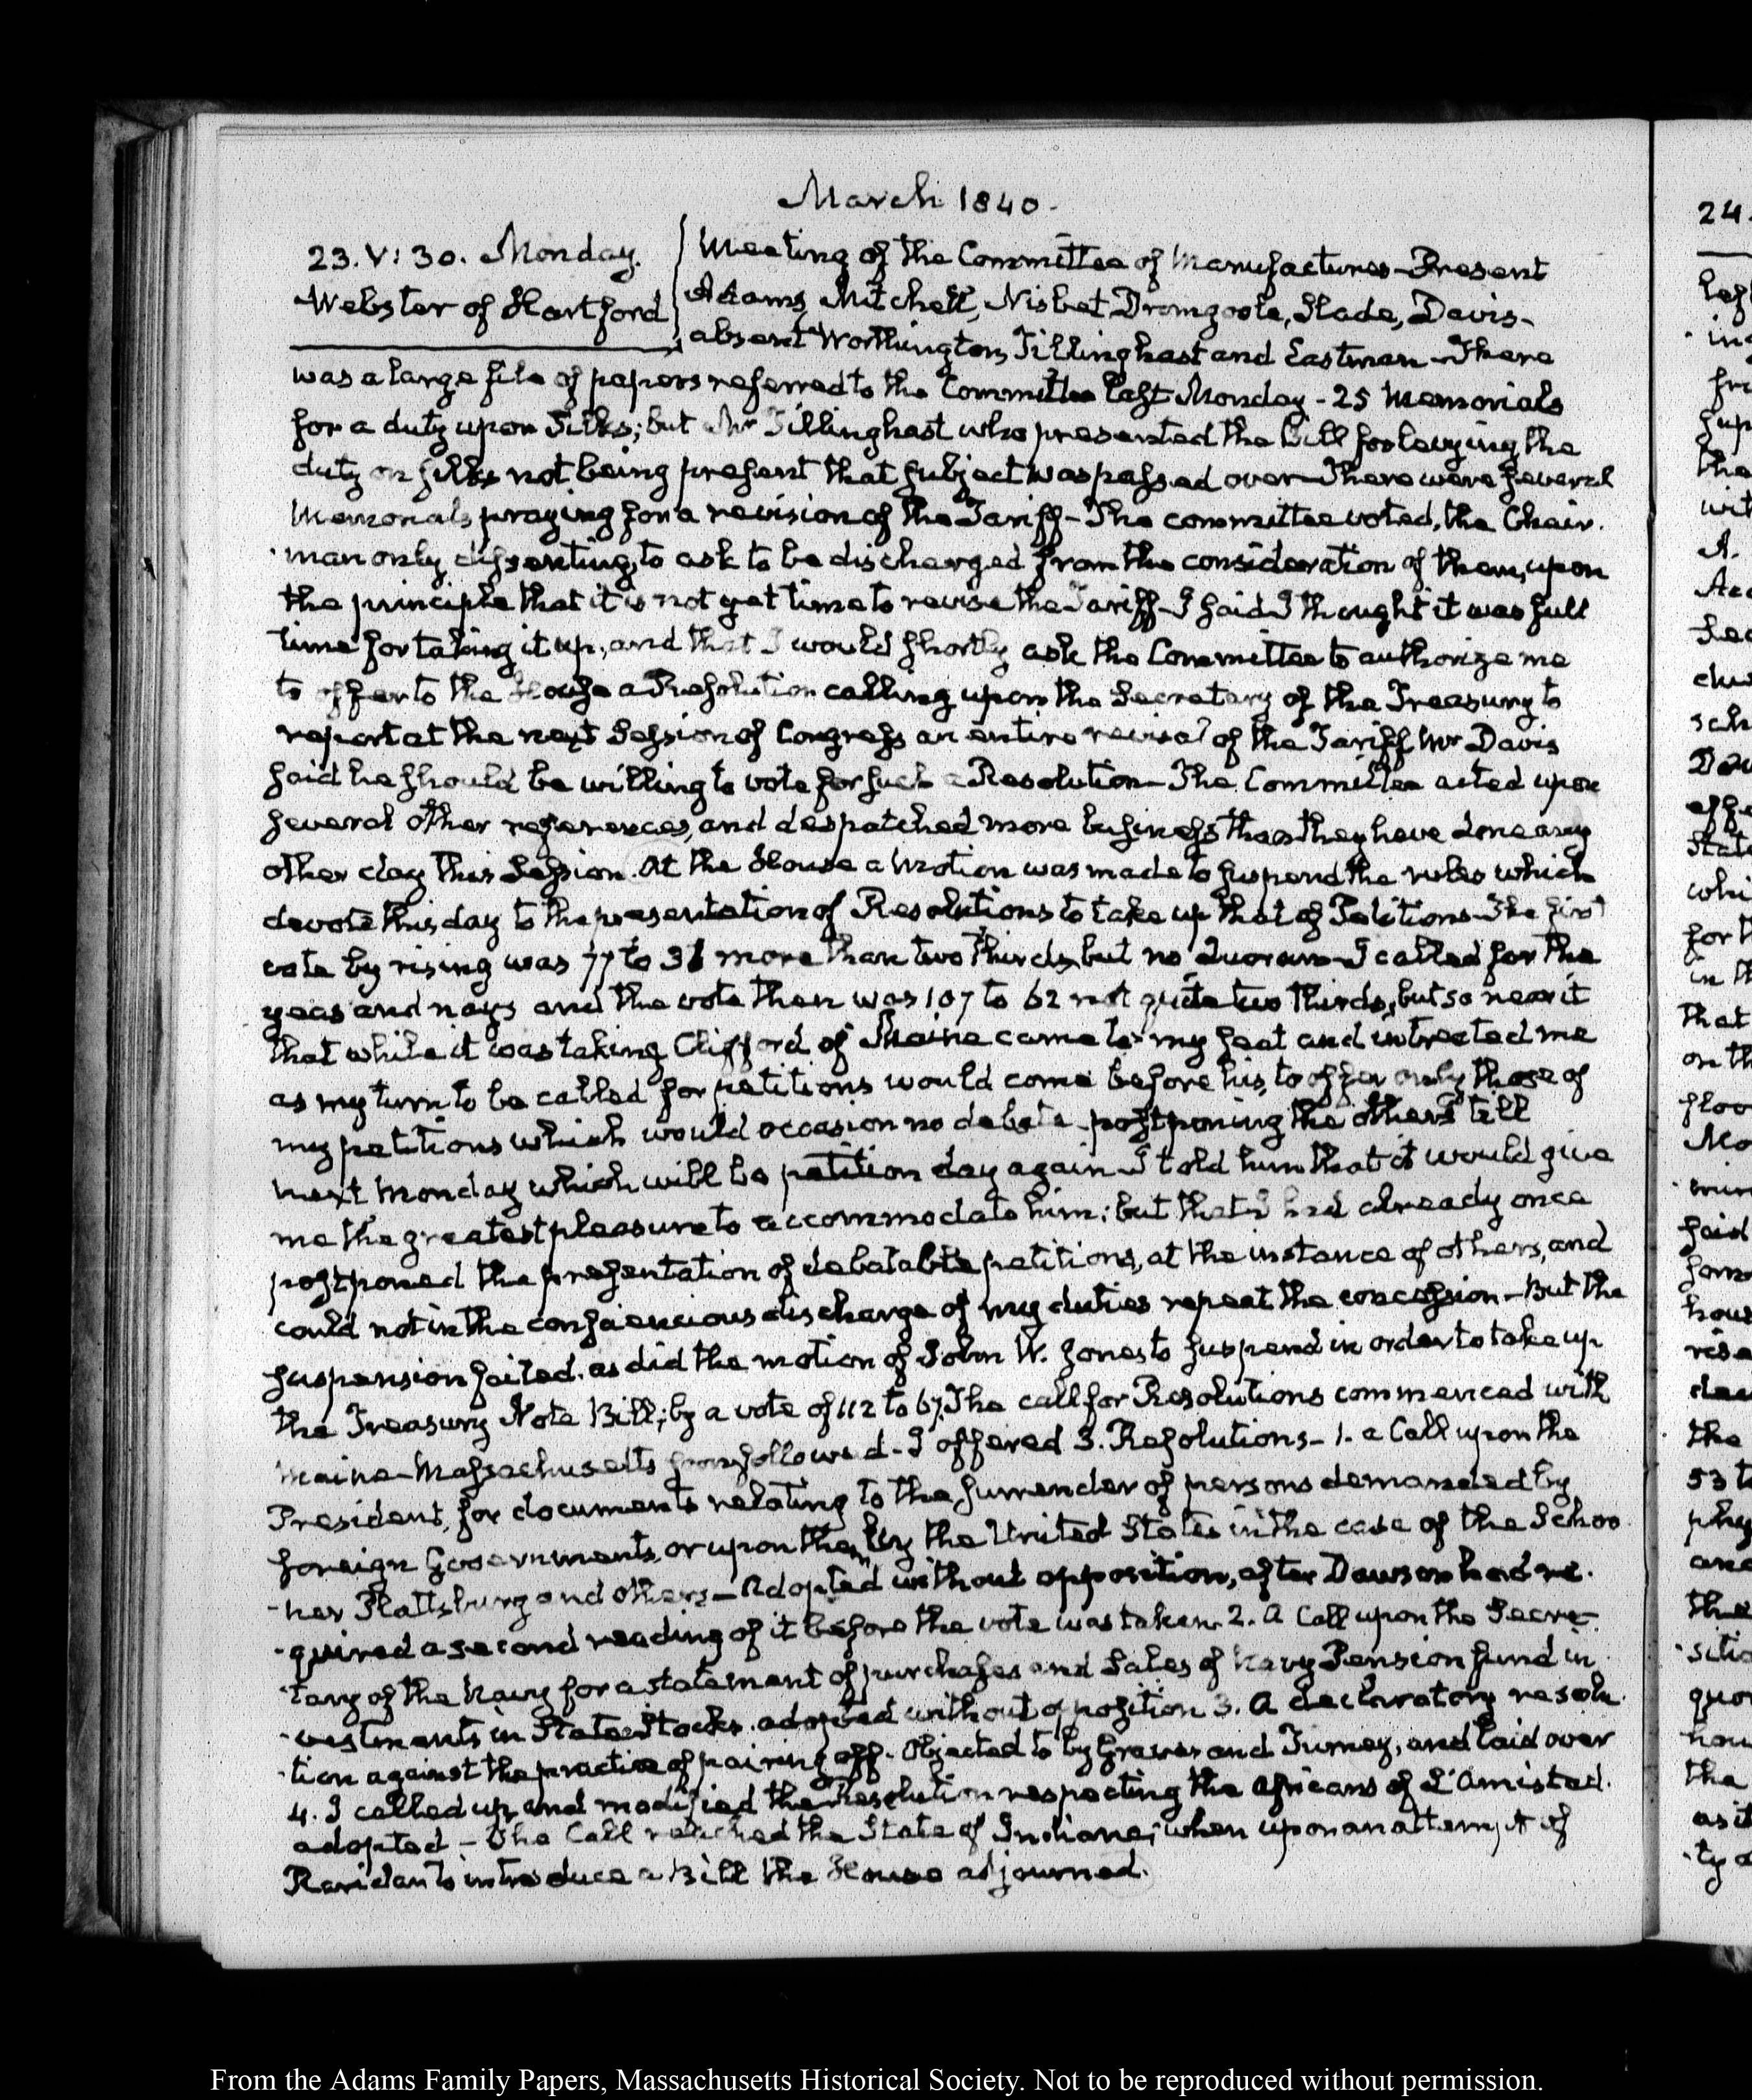 March 1840.
23. V: 30. Monday.
Webster of Hartford
Meeting of the Committee of Manufactures—Present
Adams, Mitchell, Nisbet Dromgoole, Slade, Davis—
absent Worthington, Tillinghast and Eastman—There
was a large file of papers referred to the Committee last Monday—25 Memorials
for a duty upon Silks; but Mr Tillinghast who presented the Bill for levying the
duty on silks not being present that subject was passed over—There were several
Memorials praying for a revision of the Tariff—The committee voted, the Chair-
-man only dissenting, to ask to be discharged from the consideration of them, upon
the principle that it is not yet time to revise the Tariff—I said I thought it was full
time for taking it up, and that I would shortly ask the Committee to authorize me
to offer to the House a Resolution calling upon the Secretary of the Treasury to
report at the next Session of Congress an entire revisal of the Tariff Mr Davis
said he should be willing to vote for such a Resolution—The Committee acted upon
several other references, and despatched more business than they have done any
other day this Session. At the House a Motion was made to suspend the rules which
devote this day to the presentation of Resolutions to take up that of Petitions—The first
vote by rising was 77 to 31 more than two thirds, but no Quorum—I called for the
yeas and nays and the vote then was 107 to 62 not quite two thirds, but so near it
that while it was taking Clifford of Maine came to my seat and intreated me
as my turn to be called for petitions would come before his, to offer only those of
my petitions which would occasion no debate postponing the others till
next Monday which will be petition day again—I told him that it would give
me the greatest pleasure to accommodate him; but that I had already once
postponed the presentation of debatable petitions, at the instance of others, and
could not in the consciencious discharge of my duties repeat the concession—But the
suspension failed. as did the motion of John W. Jones to suspend in order to take up
the Treasury Note Bill; by a vote of 112 to 67. The call for Resolutions commenced with
Maine—Massachusetts soon followed—I offered 3. Resolutions—1. a Call upon the
President, for documents relating to the surrender of persons demanded by
foreign Governments, or upon them by the United States in the case of the Schoo-
-ner Plattsburg and others—Adopted without opposition, after Dawson had re-
-quired a second reading of it before the vote was taken. 2. A Call upon the Secre-
-tary of the Navy for a statement of purchases and Sales of Navy Pension fund in-
-vestments in State Stocks. adopted without opposition 3. A declaratory resolu-
-tion against the practice of pairing off. Objected to by Graves and Turney, and laid over
4. I called up and modified the Resolution respecting the Africans of L'Amistad.
adopted—The Call reached the State of Indiana; when upon an attempt of
Rariden to introduce a Bill the House adjourned.
From the Adams Family Papers, Massachusetts Historical Society. Not to be reproduced without permission.